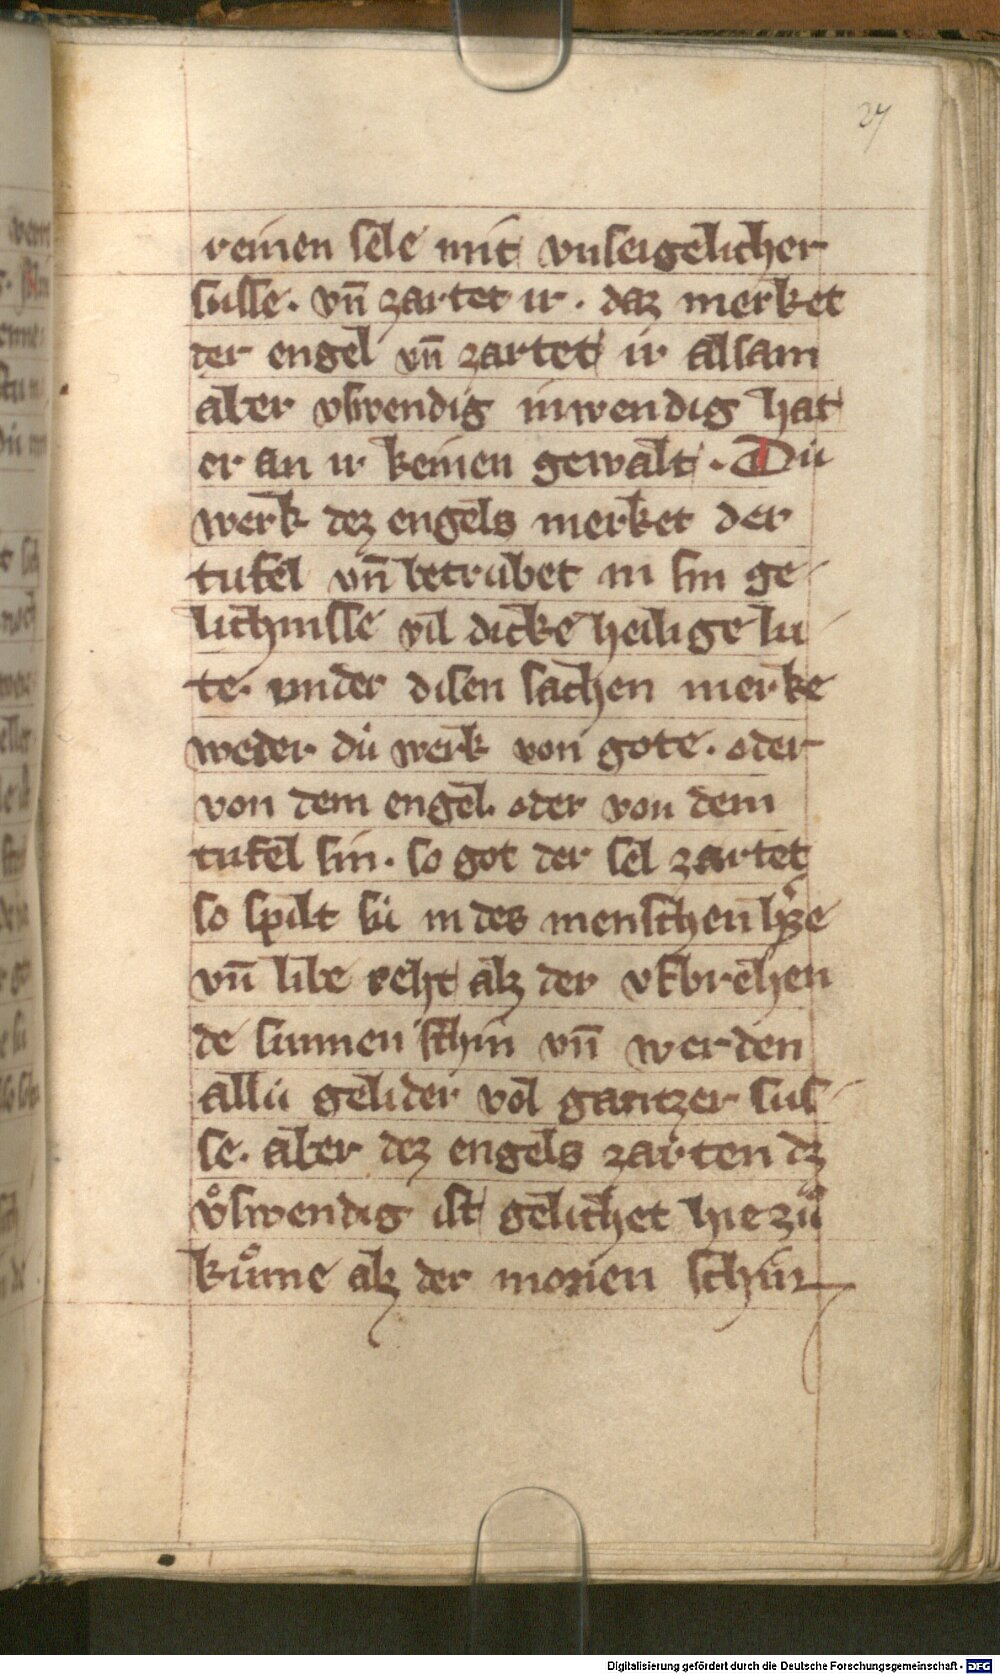 27
reinen sele mit vnseigelicher
susse. vn̄ zartet ir. daz merket
der engel vn̄ zartet ir alsam
aber vswendig inwendig hat
er an ir keinen gewalt. Dü
werk dez engels merket der
tufel vn̄ betrubet in sin ge-
lichnisse vil dicke heilige lü-
te. vnder disen sachen merke
weder dü werk von gote. oder
von dem engel. oder von dem
tufel sin. so got der sel zartet
so spilt sü in des menschen h̾ze
vn̄ libe reht alz der vfbrehen
de sunnen schin vn̄ werden
allü gelider vol gantzer sus-
se. aber dez engels zarten dz
vͦswendig ist gelichet hie zuͦ
kuͦme alz der monen schin
Digitalisierung gefördert durch die Deutsche Forschungsgemeinschaft - DFG